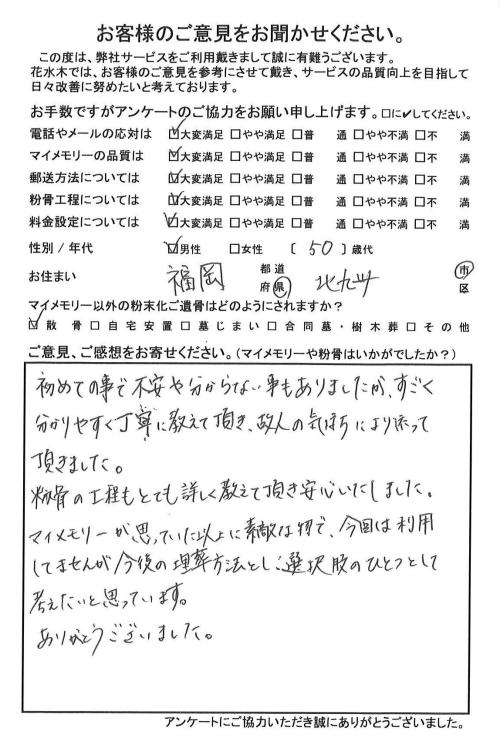 お客様のご意見をお聞かせください。
この度は、弊社サービスをご利用戴きまして誠に有難うございます。
花水木では、お客様のご意見を参考にさせて戴き、サービスの品質向上を目指して
日々改善に努めたいと考えております。
お手数ですがアンケートのご協力をお願い申し上げます。□に✓してください。
電話やメールの応対は ☑大変満足 □やや満足 □普 通 □やや不満 □不 満
マイメモリーの品質は ☑大変満足 □やや満足 □普 通 □やや不満 □不 満
郵送方法については ☑大変満足 □やや満足 □普 通 □やや不満 □不 満
粉骨工程については ☑大変満足 □やや満足 □普 通 □やや不満 □不 満
料金設定については ☑大変満足 □やや満足 □普 通 □やや不満 □不 満
性別 / 年代 ☑男性 □女性 〔 50 〕歳代
お住まい 福岡 都道府県 北九州 市区
マイメモリー以外の粉末化ご遺骨はどのようにされますか?
☑散 骨 □自宅安置 □墓じまい □合同墓・樹木葬 □その他
ご意見、ご感想をお寄せください。(マイメモリーや粉骨はいかがでしたか?)
初めての事で不安や分からない事もありましたが、すごく
分かりやすく丁寧に教えて頂き、故人の気持ちにより添って
頂きました。
粉骨の工程もとても詳しく教えて頂き安心いたしました。
マイメモリーが思っていた以上に素敵な物で、今回は利用
してませんが今後の埋葬方法とし選択肢のひとつとして
考えたいと思っています。
ありがとうございました。
アンケートにご協力いただき誠にありがとうございました。